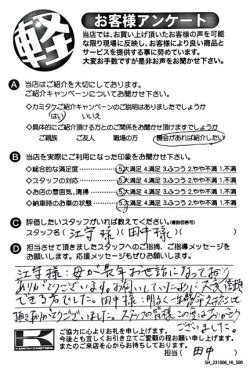 軽
お客様アンケート
当店では、お買い上げ頂いたお客様の声を可能
な限り現場に反映し、お客様により良い商品と
サービスを提供する事に努めています。
大変お手数ですが是非お声をお聞かせ下さい。
A 当店はご紹介を大切にしております。
ご紹介キャンペーンについてお聞かせ下さい。
◇カミタケご紹介キャンペーンのご説明はありましたでしょうか
はい いいえ
◇具体的にご紹介頂ける方とのご関係をお聞かせ頂けますでしょうか
ご親族 ご友人 職場の方 機会があれば紹介したい
B 当店を実際にご利用になった印象をお聞かせ下さい。
◇総合的な満足度 5.大満足 4.満足 3.ふつう 2.やや不満 1.不満
◇スタッフの対応 5.大満足 4.満足 3.ふつう 2.やや不満 1.不満
◇お店の雰囲気、清掃 5.大満足 4.満足 3.ふつう 2.やや不満 1.不満
◇納車時のお車の状態 5.大満足 4.満足 3.ふつう 2.やや不満 1.不満
C 評価したいスタッフがいれば教えてください。(複数回答可)
スタッフ名(江守様)(田中様)( )
D 担当させて頂きましたスタッフへのご指摘、ご指導メッセージを
お願いします。応援メッセージもぜひお願いします。
江守様:母が長年お世話になっており
ありがとうございます。お願いしたいために大変信頼
できる方でした。田中様:明るく
ありがとうございました。スタッフの皆様この度はありがとう
ございました。
ご協力に心よりお礼を申し上げます。
今後とも宜しくお引き立てご愛顧の程お願い申し上げます。
またのご来店を心からお待ちしております。
担当( 田中 )
SH_231006_16_500